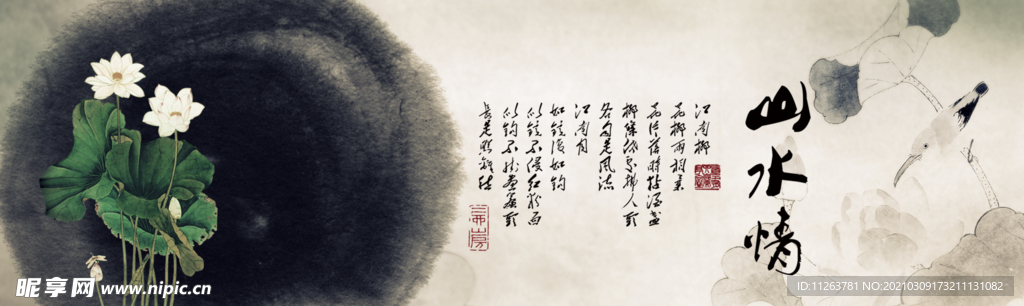 山水情
江南柳
花柳兩相柔
花片落時黏酒盞
柳條低處拂人頭
各自是風流
江南月
如鏡復如鉤
似鏡不侵紅粉面
似鉤不掛畫簾頭
長是照離愁
昵享网 www.nipic.cn
ID:11263781 NO:20210309173211131082